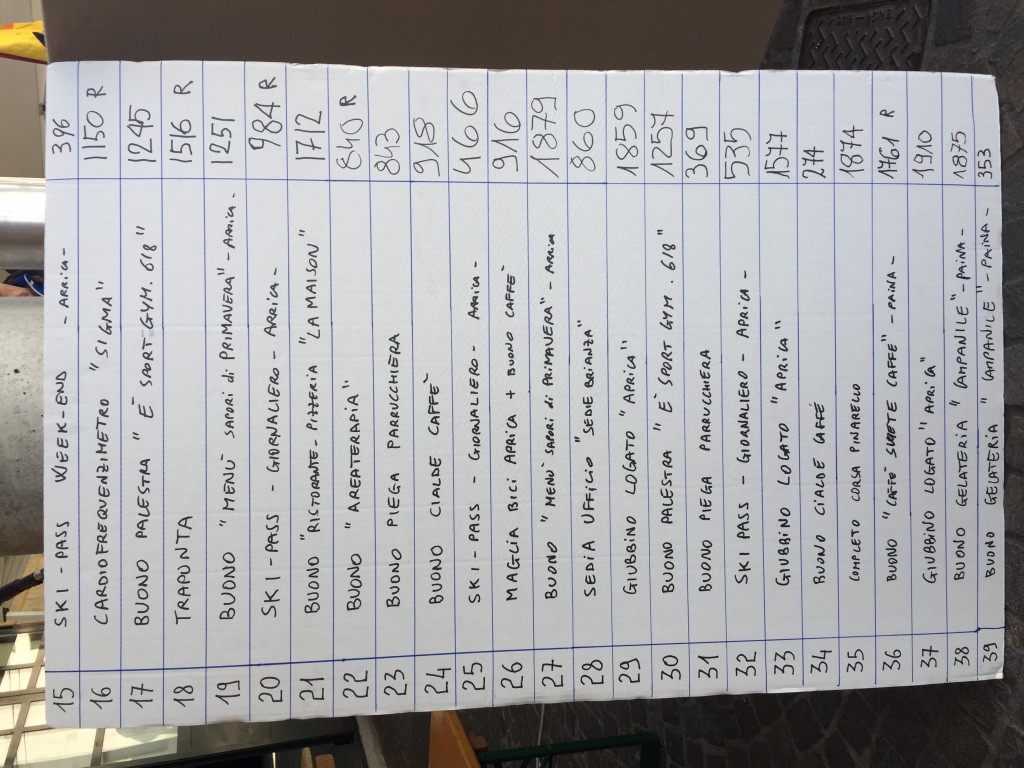 15 SKI - PASS WEEK - END - APRICA - 396
16 CARDIOFREQUENZIMETRO "SIGMA" 1150 R
17 BUONO PALESTRA "È SPORT GYM. 618" 1245
18 TRAPUNTA 1516 R
19 BUONO "MENÙ SAPORI di PRIMAVERA" - APRICA - 1251
20 SKI - PASS - GIORNALIERO - APRICA - 984 R
21 BUONO "RISTORANTE - PIZZERIA "LA MAISON" 1712
22 BUONO "AREATERAPIA" 840 R
23 BUONO PIEGA PARRUCCHIÈRA 843
24 BUONO CIALDE CAFFÈ 918
25 SKI - PASS - GIORNALIERO - APRICA - 466
26 MAGLIA BICI APRICA + BUONO CAFFÈ 916
27 BUONO "MENÙ SAPORI di PRIMAVERA" - APRICA 1879
28 SEDIA UFFICIO "SEDIE BRIANZA" 860
29 GIUBBINO LOGATO "APRICA" 1859
30 BUONO PALESTRA "È SPORT GYM. 618" 1257
31 BUONO PIEGA PARRUCCHIERA 369
32 SKI PASS - GIORNALIERO - APRICA - 535
33 GIUBBINO LOGATO "APRICA" 1577
34 BUONO CIALDE CAFFÉ 274
35 COMPLETO CORSA PINARELLO 1874
36 BUONO "CAFFÈ CAFFÈ" - PAINA - 1761 R
37 GIUBBINO LOGATO "APRICA" 1910
38 BUONO GELATERIA "CAMPANILE" - PAINA - 1875
39 BUONO GELATERIA "CAMPANILE" - PAINA - 353